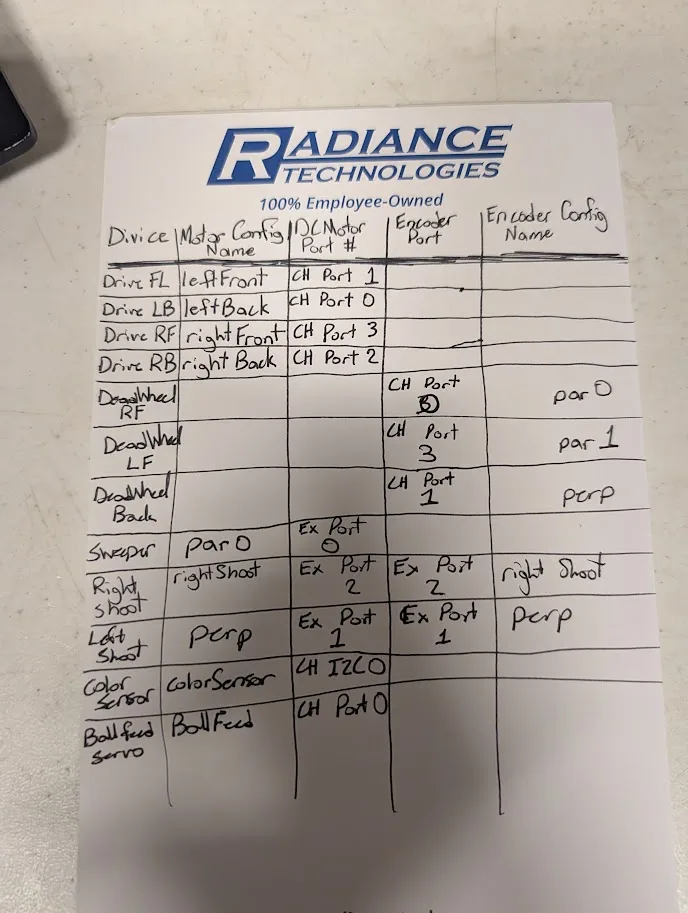 RADIANCE
TECHNOLOGIES
100% Employee-Owned
Divice Motor Config Name DC Motor Port # Encoder Port Encoder Config Name
Drive FL leftFront CH Port 1
Drive LB leftBack CH Port 0
Drive RF rightFront CH Port 3
Drive RB rightBack CH Port 2
DeadWheel RF CH Port 0 par0
DeadWheel LF CH Port 3 par1
DeadWheel Back CH Port 1 perp
Sweeper par0 Ex Port 0
Right shoot rightShoot Ex Port 2 Ex Port 2 right Shoot
Left Shoot perp Ex Port 1 Ex Port 1 perp
Color Sensor colorSensor CH I2C0
Ballfeed servo BallFeed CH Port 0